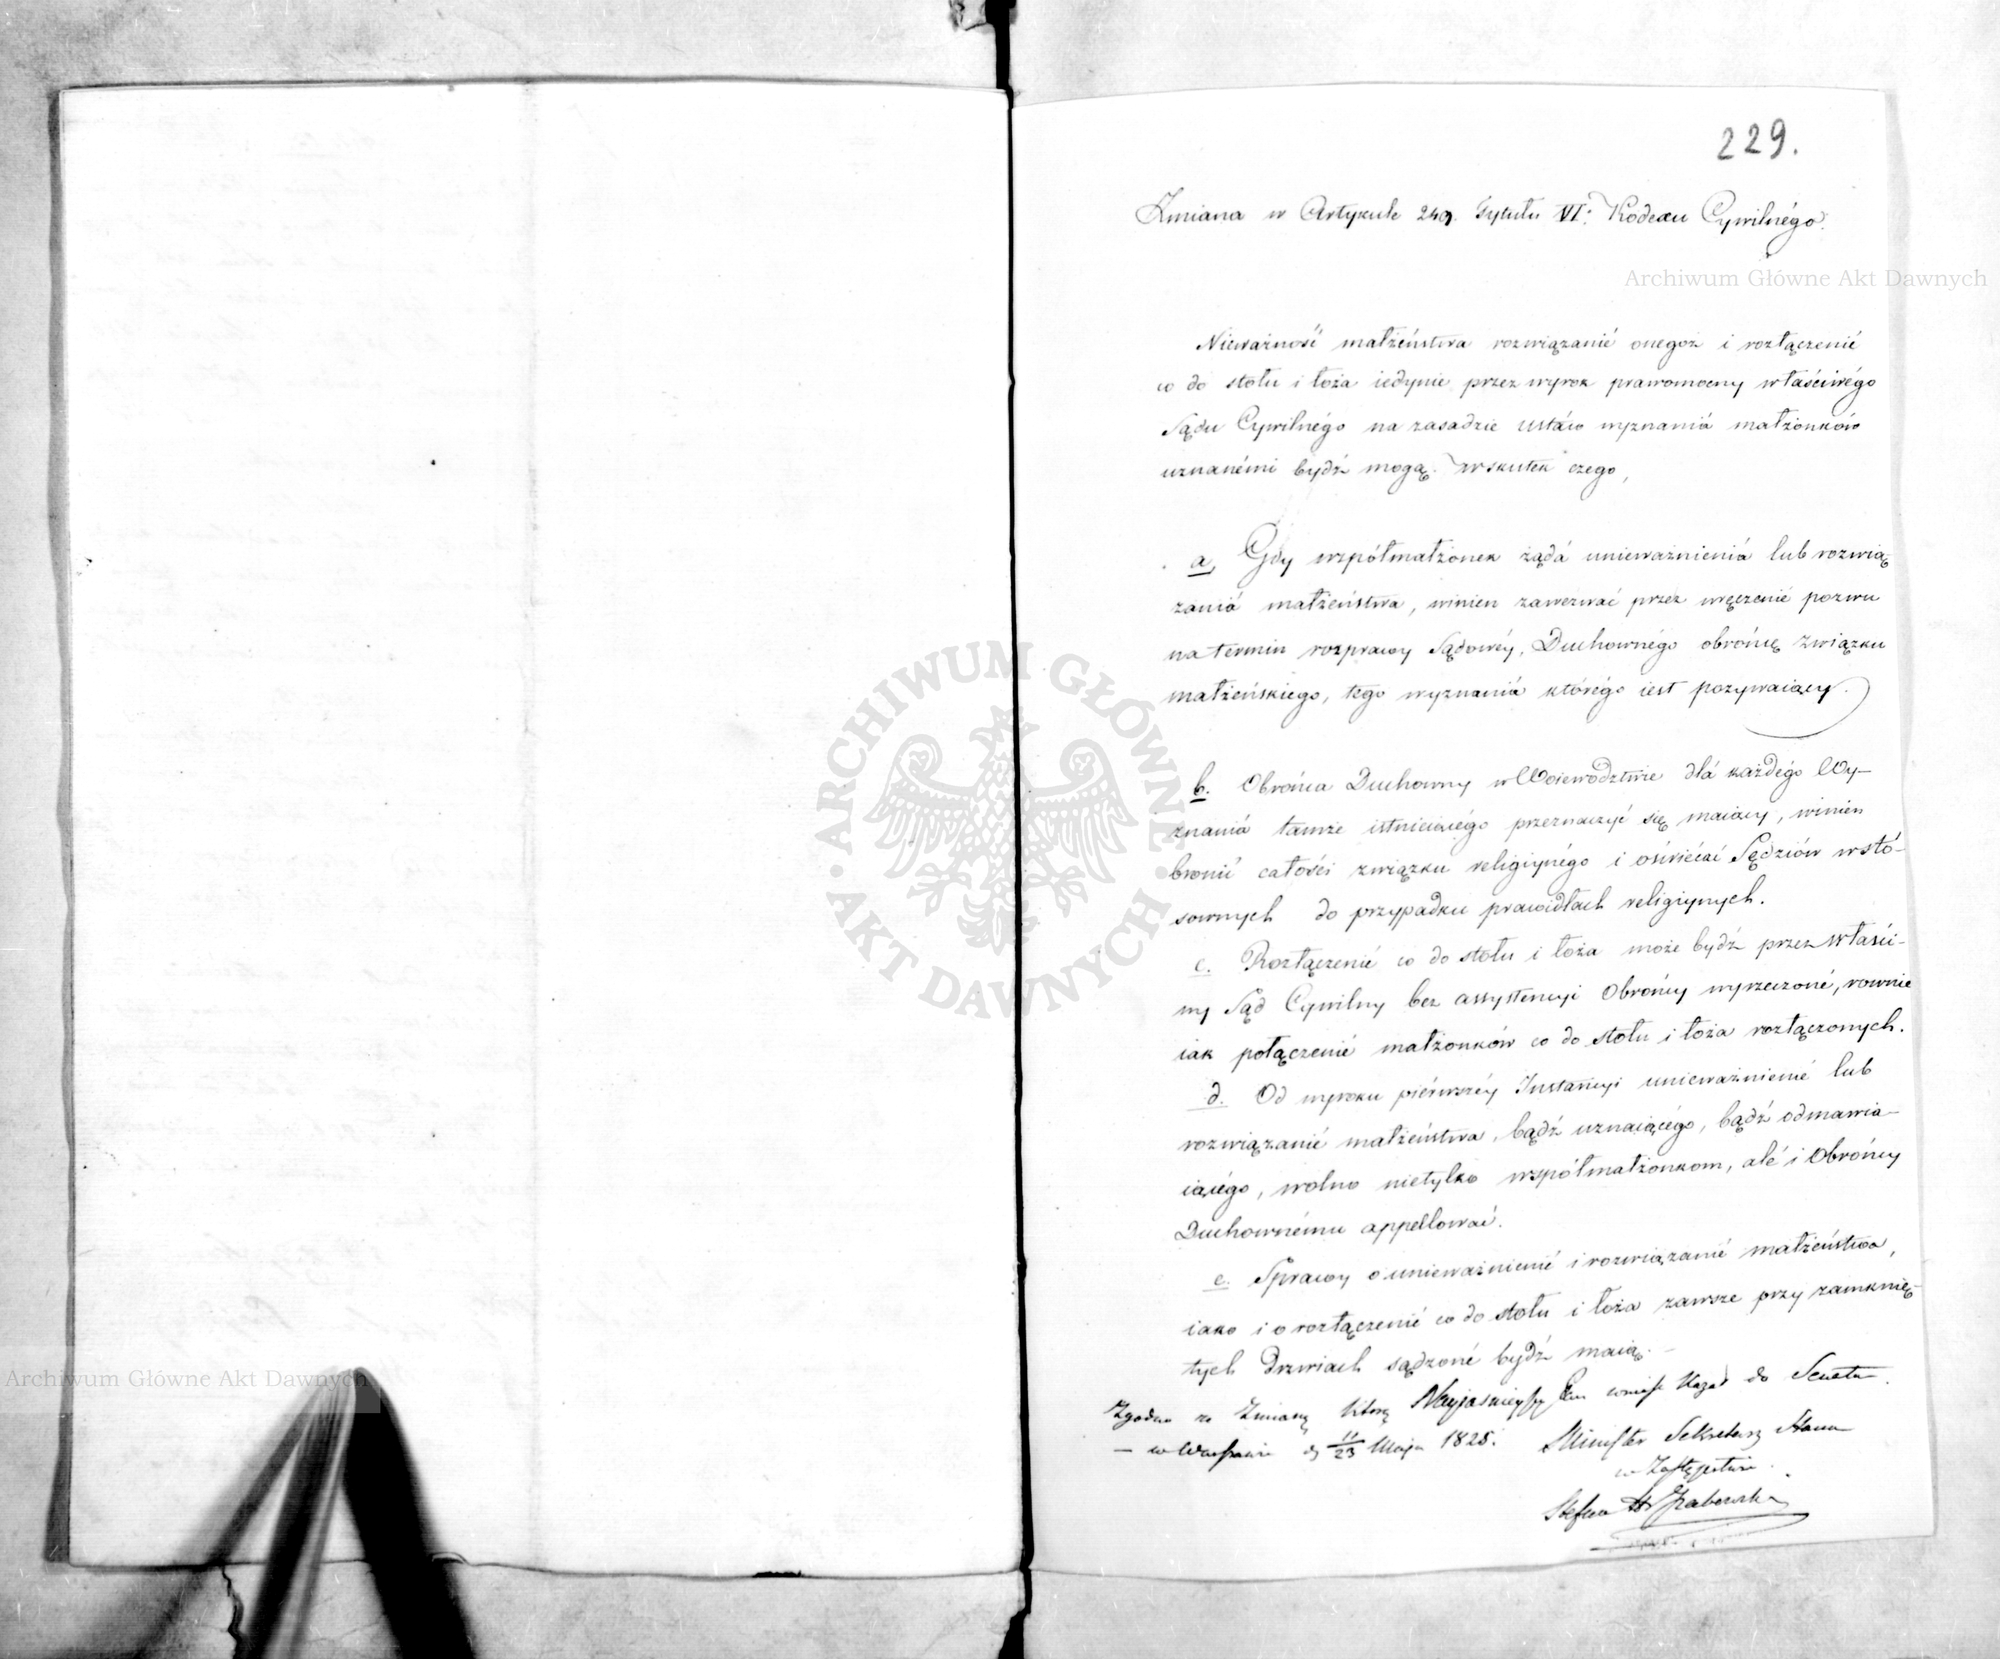 229.
Zmiana w Artykule 249. Tytułu VI. Kodexu Cywilnégo.
Archiwum Główne Akt Dawnych
Nieważność małżeństwa rozwiązanié onegoż i rozłączenié
co do stołu i łoża iedynie przez wyrok prawomocny właściwégo
Sądu Cywilnégo na zasadzie ustaw wyznaniá małżonków
uznanémi bydź mogą. W skutek czego,
a, Gdy współmałżonek żądá unieważnieniá lub rozwią
zaniá małżeństwa, winien zawezwać przez wręczenié pozwu
na termin rozprawy Sądowéy, Duchownégo obrońcę związku
małżeńskiego, tego wyznaniá którégo iest pozywaiący.
b. Obrońca Duchowny w Woiewództwie dlá każdégo Wy-
znaniá tamże istnieiącégo przeznaczyć się maiący, winien
bronić całości związku religiynégo i oświécać Sędziów w stó-
sownych do przypadku prawidłach religiynych.
c. Rozłączenié co do stołu i łoża może bydź przez właści-
wy Sąd Cywilny bez assystencyi Obrońcy wyrzeczoné, rownie
iak połączenié małżonków co do stołu i łoża rozłączonych.
d. Od wyroku piérwszéy Instancyi unieważnienié lub
rozwiązanié małżeństwa, bądź uznaiącégo, bądź odmawia-
iącégo, wolno nietylko współmałżonkom, alé i Obrońcy
Duchownému appellować.
e. Sprawy o unieważnienié i rozwiązanié małżeństwa,
iako i o rozłączenié co do stołu i łoża zawsze przy zamknię-
tych Drzwiach sądzoné bydź maią.
Zgodno ze Zmianą którą Nayjaśnieyszy Pan wnieść kazał do Senatu.
– w Warszawie dy 11/23 Maja 1825. Minister Sekretarz Stanu
w Zastępstwie.
Stefan Hr Grabowski
ARCHIWUM GŁÓWNE
AKT DAWNYCH
Archiwum Główne Akt Dawnych